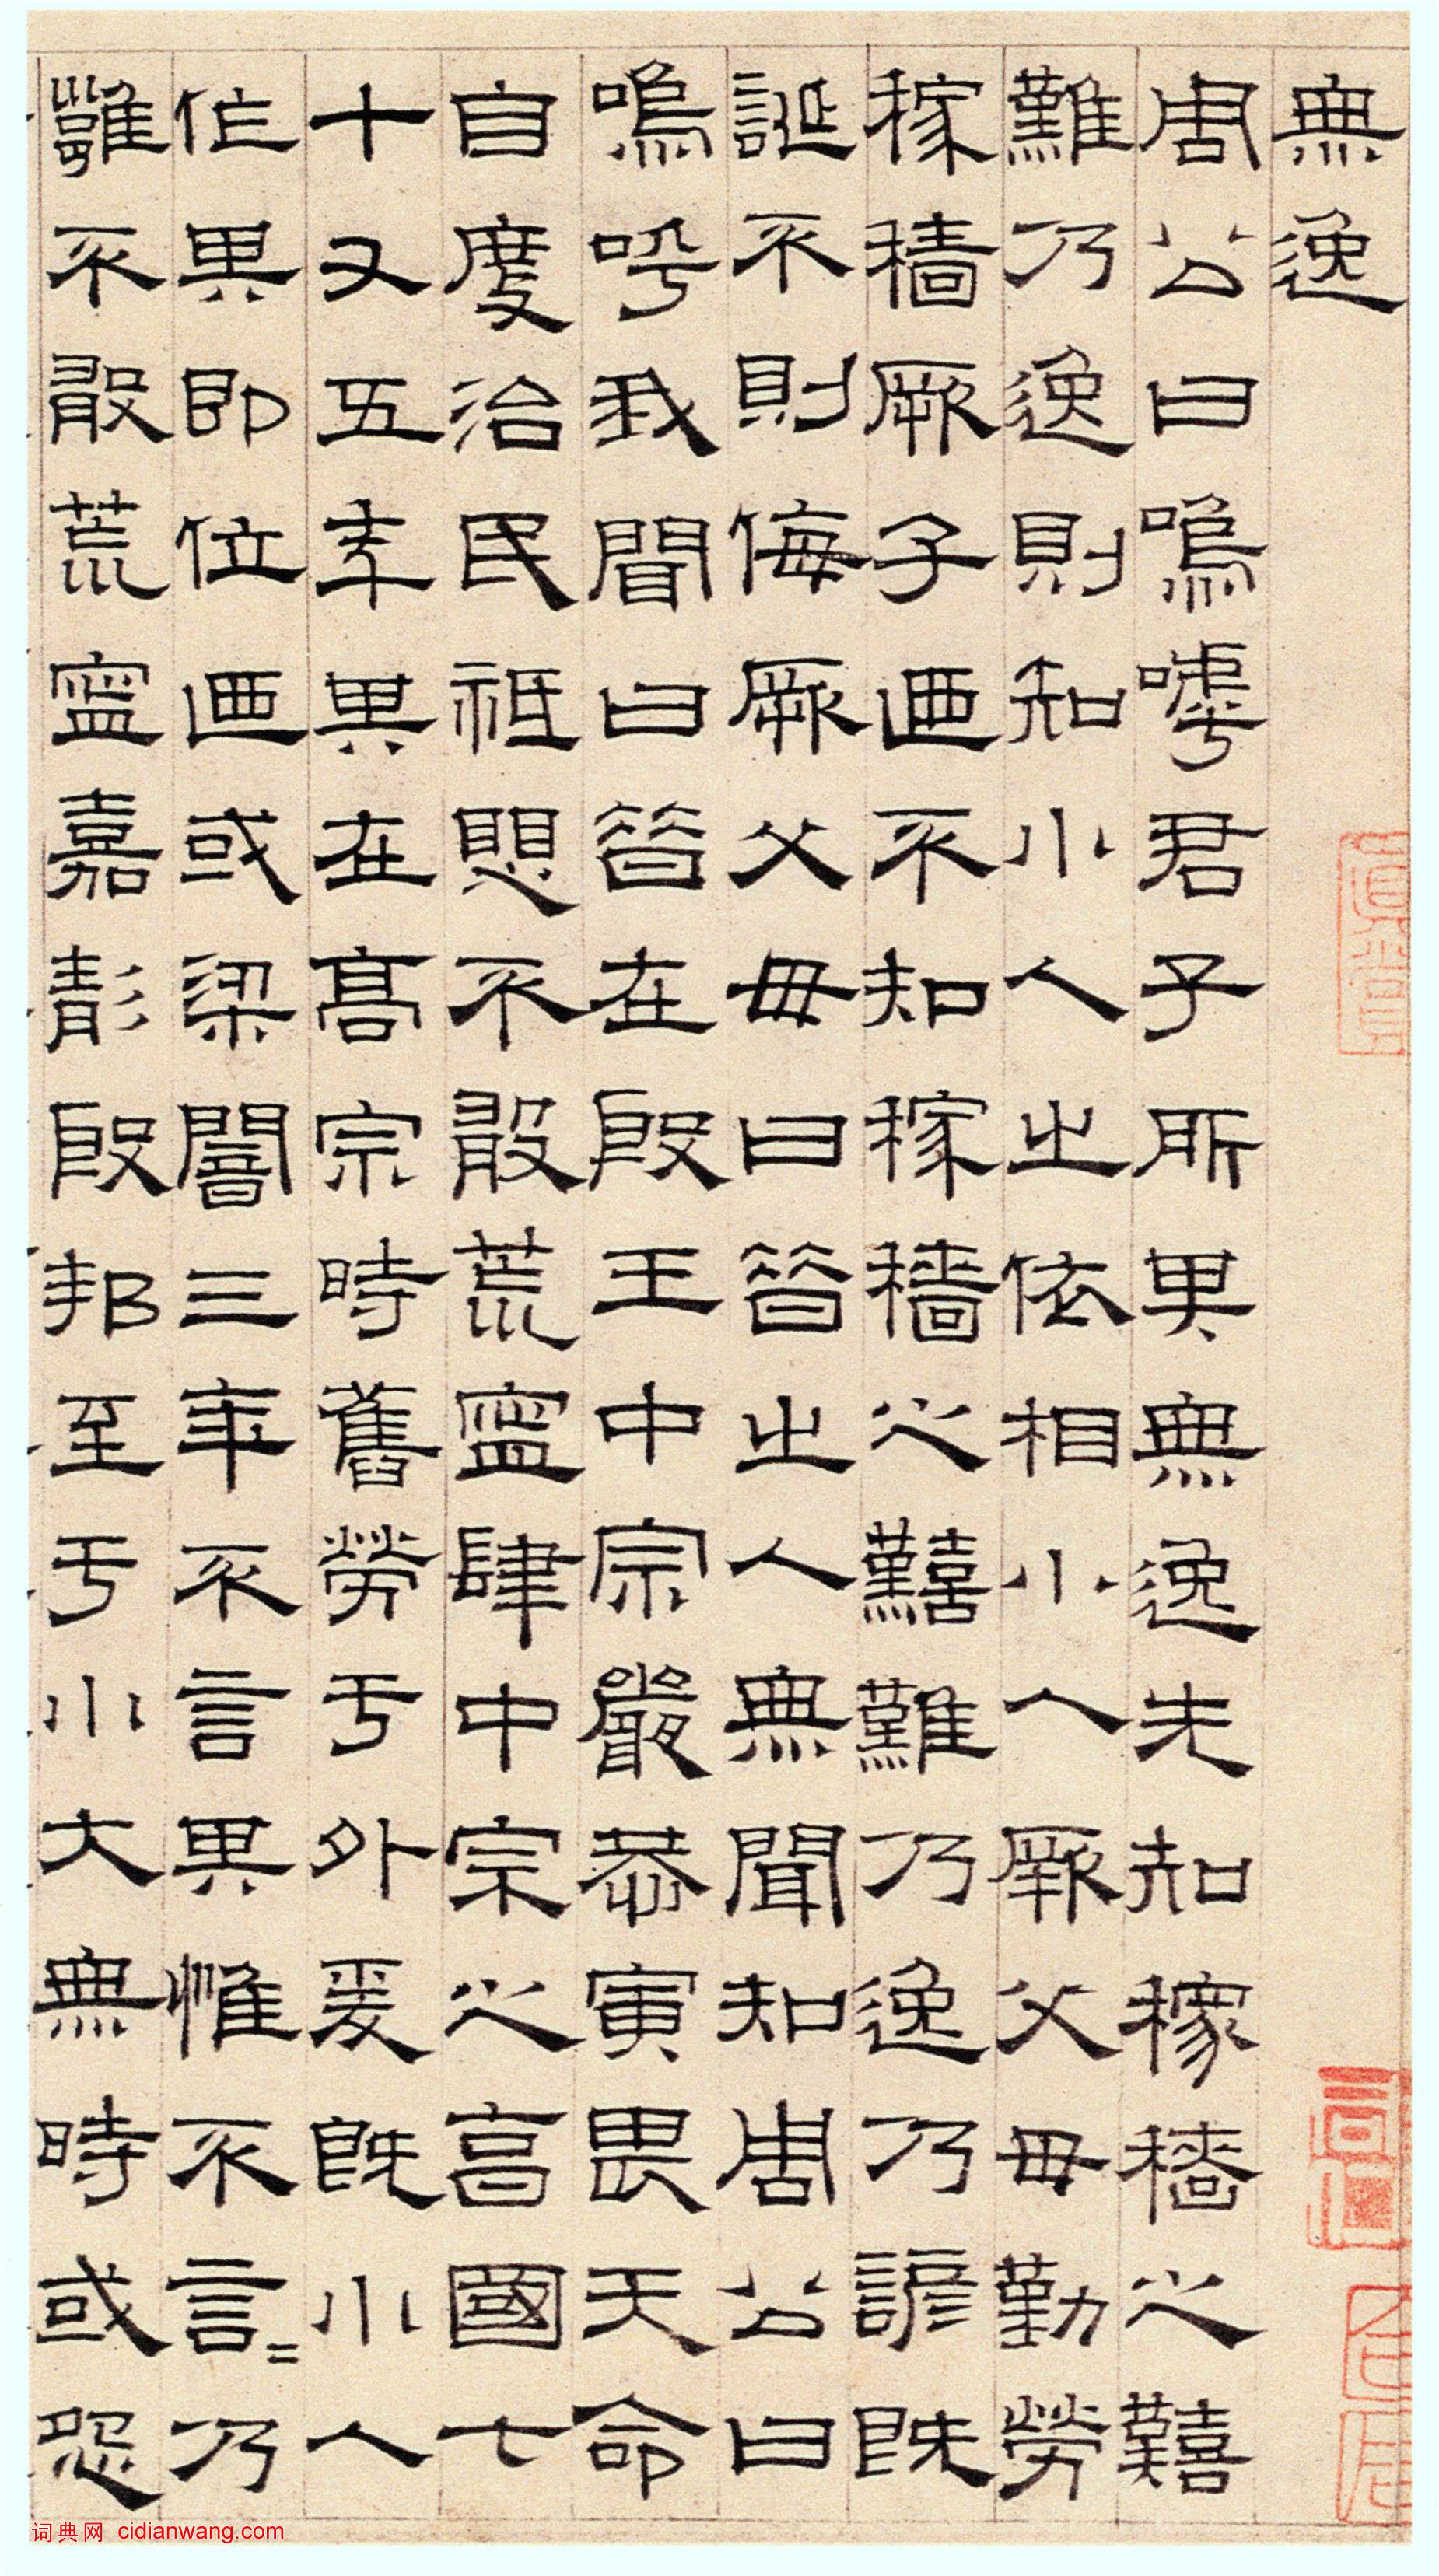 無逸
周公曰嗚嘑君子所其無逸先知稼穡之囏
難乃逸則知小人之依相小人厥父母勤勞
稼穡厥子迺不知稼穡之囏難乃逸乃諺既
誕不則侮厥父母曰昔之人無聞知周公曰
嗚呼我聞曰昔在殷王中宗嚴恭寅畏天命
自度治民祗愳不敢荒寧肆中宗之享國七
十又五年其在高宗時舊勞于外爰既小人
作其即位迺或梁闇三年不言其惟不言=乃
雝不敢荒寧嘉靜殷邦至于小大無時或怨
词典网 cidianwang.com